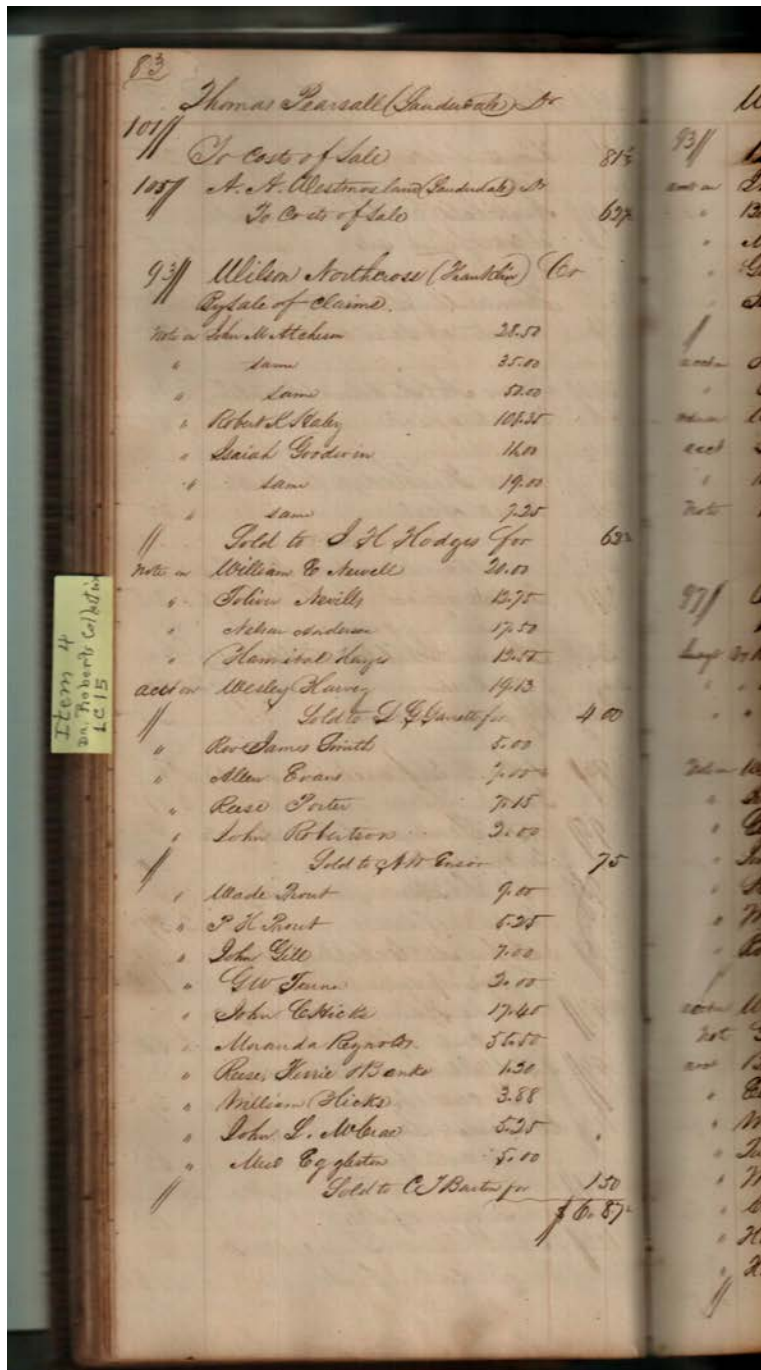 83
Thomas Pearsall (Lauderdale) Dr
101
To Costs of Sale 81½
105 A. A. Westmoreland (Lauderdale) Dr
To Costs of Sale 62½
93 Wilson Northcross (Franklin) Cr
By Sale of Claims.
Note on John M Atcheson 28.50
" same 35.00
" same 50.00
" Robert K Haley
" Isaiah Goodwin 16.00
" same 19.00
" same 7.25
Sold to J H Hodges for 62½
Note on William C Newell 20.00
" Toliver Nevills 12.75
" Nelson Anderson 17.50
" Hannibal Hays 13.50
acct on Wesley Harvey 19.13
Sold to D G Garrett for 4 00
" Rev James Smith 5.00
" Allen Evans 7.00
" Reese Porter 7.15
" John Robertson 2.00
Sold to A W Ensor 75
" Wade Prout 9.00
" P H Prout 5.25
" John Gill 7.00
" G W 2.00
" John C Hicks 17.40
" Moranda Reynolds 55.50
" Reese, & Banks 1.20
" William Hicks 3.88
" John L. McCrae 5.25
" Eggleston 5.00
Sold to C J Barton for 1 50
$6.87½
Item 4
Dr. Roberts Collection
LC 15
93
97